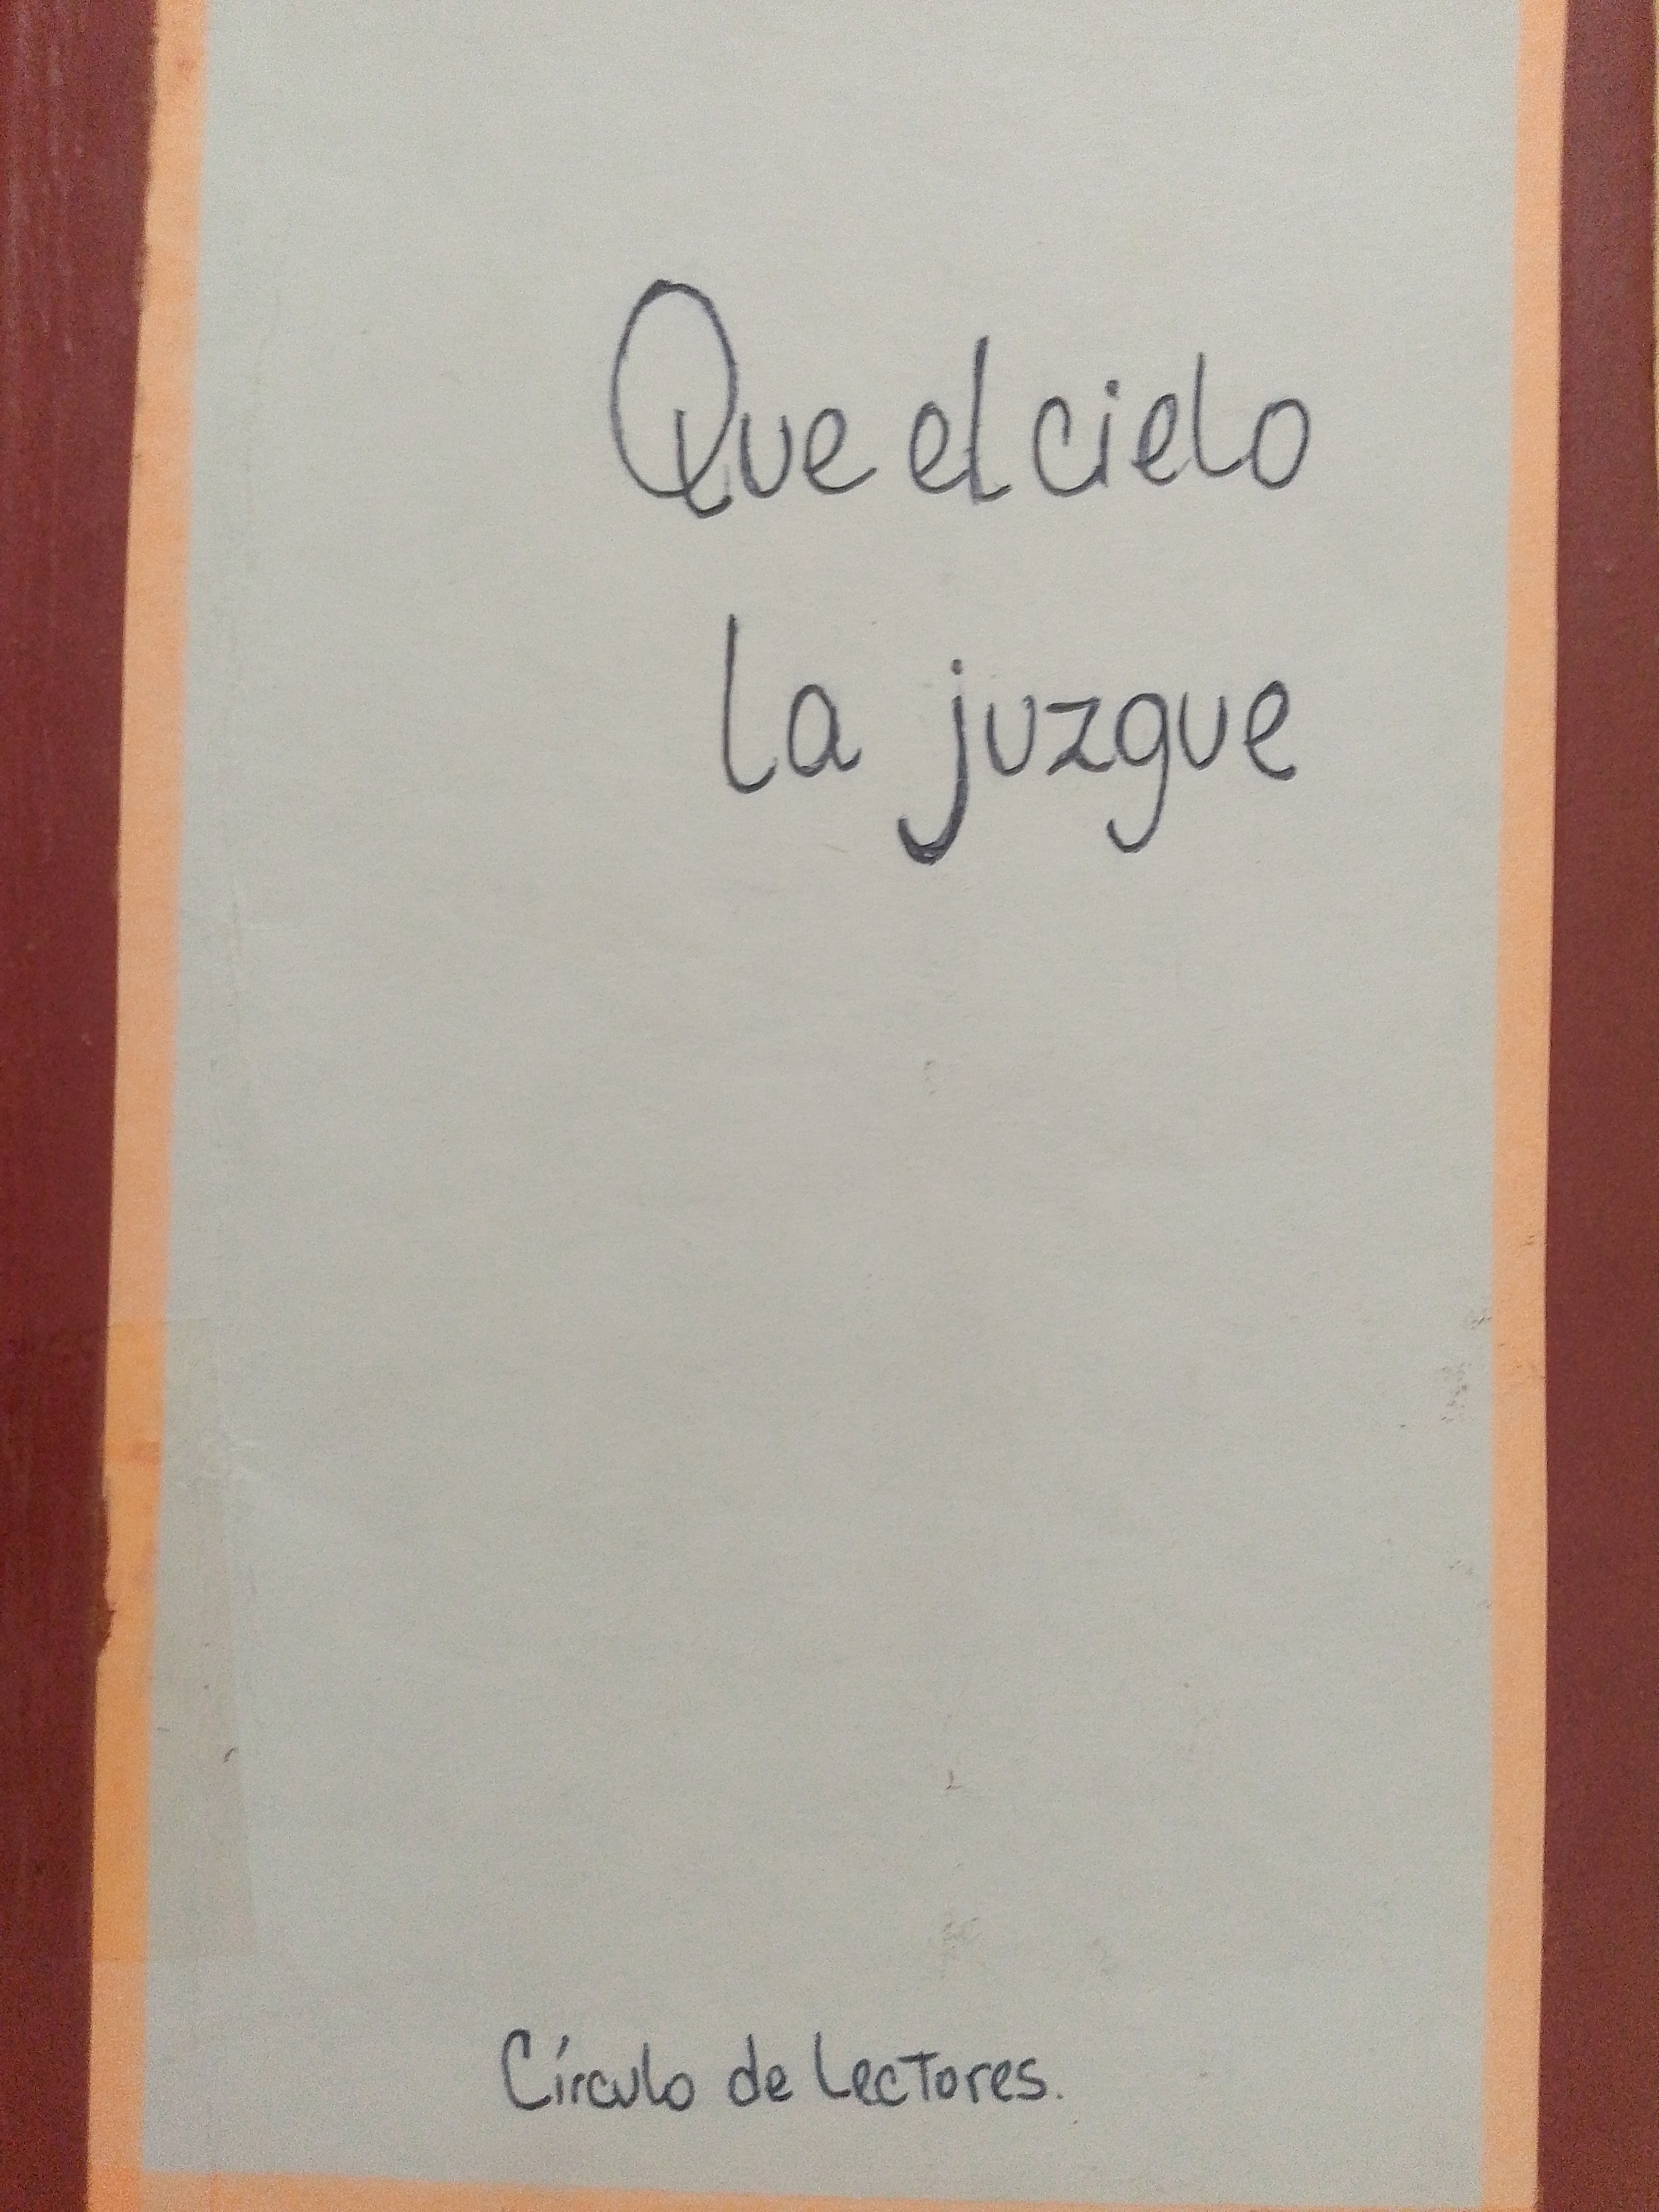 Que el cielo
la juzgue
Círculo de Lectores.